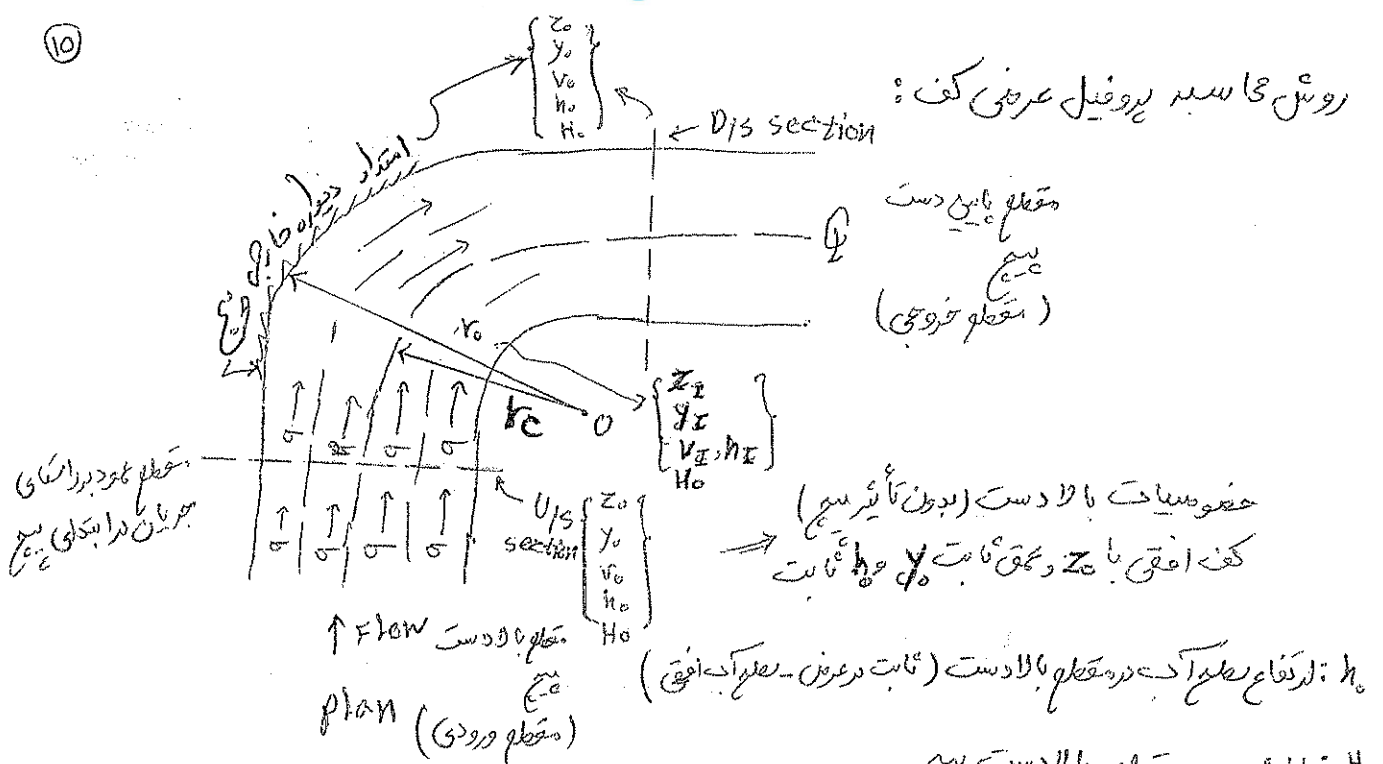 10
روش محاسبه پروفیل عرضی کف :
z₀
y₀
v₀
h₀
H₀
← D/S section
امتداد دیواره خارجی پیچ
مقطع پایین دست
پیچ
(مقطع خروجی)
r₀
r_c
O
z_I
y_I
v_I, h_I
H₀
σ σ σ σ
σ σ σ σ
مقطع عمود بر راستای
جریان در ابتدای پیچ
U/S
section
z₀
y₀
v₀
h₀
H₀
خصوصیات بالا دست (بدون تأثیر پیچ)
کف افقی با z₀ و عمق ثابت y₀ و h₀ ثابت
↑ Flow
مقطع بالا دست
پیچ
(مقطع ورودی)
plan
h₀ : ارتفاع سطح آب در مقطع بالادست (ثابت در عرض - سطح آب افقی)